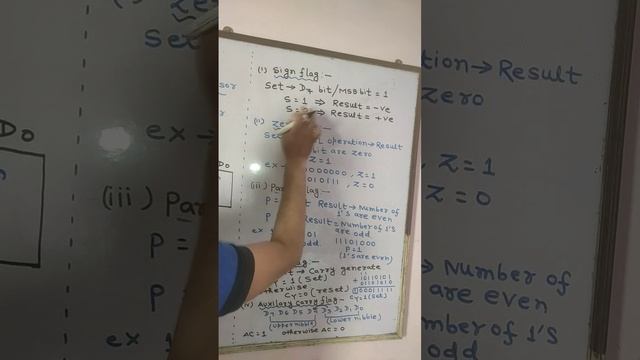 (i) Sign flag:-
Set → D7 bit/MSB bit = 1
S = 1 ⇒ Result = -ve
S = ⇒ Result = +ve
(ii)
operation → Result
bit are zero
ex - Z = 1
0000000, Z=1
010111, Z=0
(iii) flag:-
P = Result → Number of
1'S are even
P Result = Number of 1'S
are odd
ex 101 11101000
odd. P=1
(1's are even)
flag:-
→ Carry generate
= 1 (Set)
otherwise
CY=0 (reset)
10110101
01101010
CY=1 (Set)
(iv) Auxilary Carry flag:-
D7 D6 D5 D4 D3 D2 D1 D0
(upper nibble) (lower nibble)
AC=1 otherwise AC=0
Set
sor
D0
ex -
(iii) Par
P =
P
ex 1
Z = 1
Z = 0
Number of
are even
umber of 1'S
are odd.